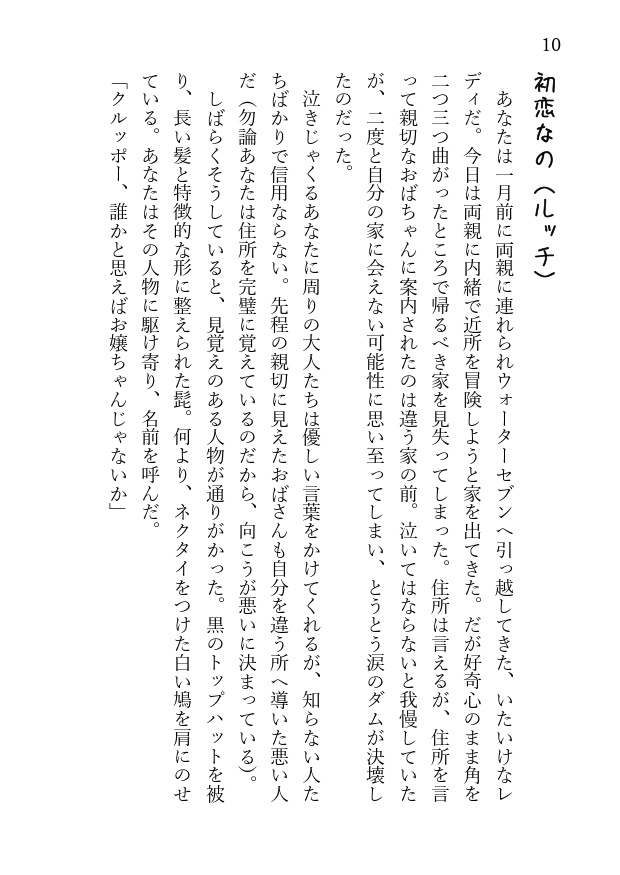 10
初恋なの（ルッチ）
あなたは一月前に両親に連れられウォーターセブンへ引っ越してきた、いたいけなレ
ディだ。今日は両親に内緒で近所を冒険しようと家を出てきた。だが好奇心のまま角を
二つ三つ曲がったところで帰るべき家を見失ってしまった。住所は言えるが、住所を言
って親切なおばちゃんに案内されたのは違う家の前。泣いてはならないと我慢していた
が、二度と自分の家に会えない可能性に思い至ってしまい、とうとう涙のダムが決壊し
たのだった。
泣きじゃくるあなたに周りの大人たちは優しい言葉をかけてくれるが、知らない人た
ちばかりで信用ならない。先程の親切に見えたおばさんも自分を違う所へ導いた悪い人
だ（勿論あなたは住所を完璧に覚えているのだから、向こうが悪いに決まっている）。
しばらくそうしていると、見覚えのある人物が通りがかった。黒のトップハットを被
り、長い髪と特徴的な形に整えられた髭。何より、ネクタイをつけた白い鳩を肩にのせ
ている。あなたはその人物に駆け寄り、名前を呼んだ。
「クルッポー、誰かと思えばお嬢ちゃんじゃないか」